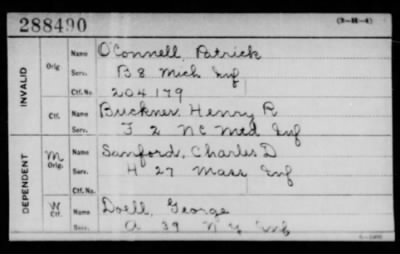 288490 (3-M-4)
INVALID
Orig. Name O'Connell, Patrick
Serv. B 8 Mich Inf
Ctf. No. 204179
Ctf. Name Buckner, Henry R
Serv. F 2 NC Mtd Inf
DEPENDENT
M Orig. Name Sanford, Charles D
Serv. H 27 Mass Inf
Ctf. No.
W Ctf. Name Doell, George
Serv. A 39 N Y Inf